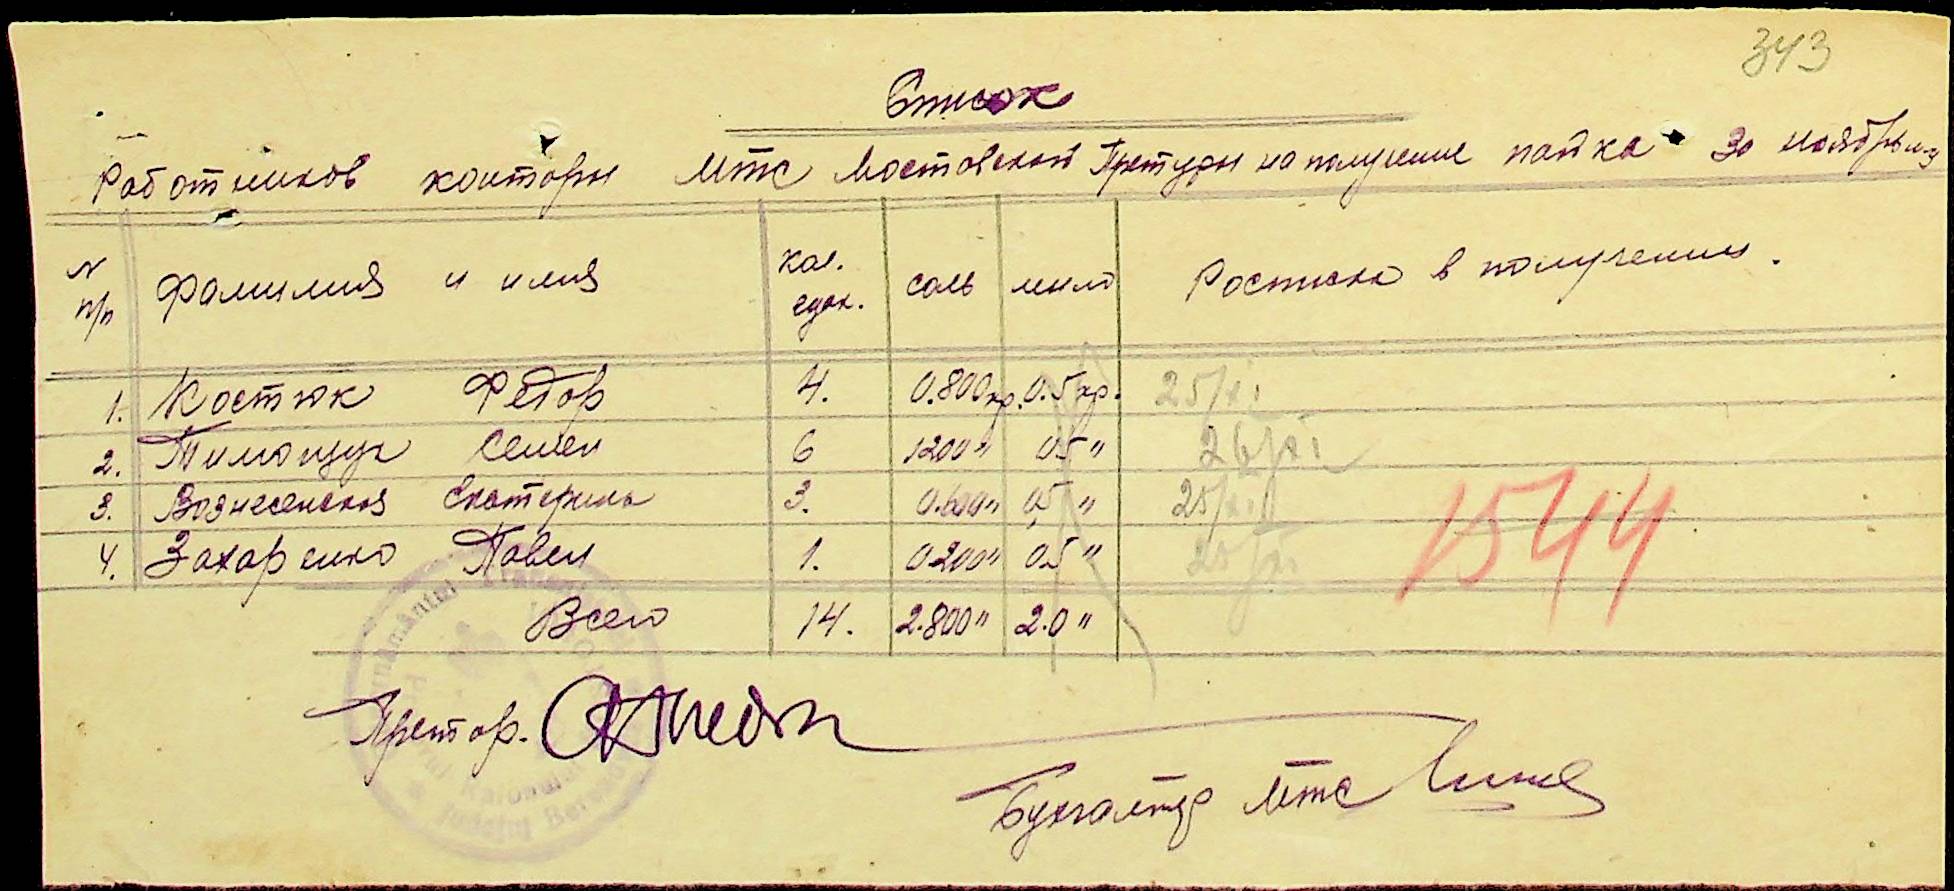 343
Список
Работников конторы МТС Мостовской Претуры на получение пайка за ноябрь м-ц
N п/п Фамилия и имя Кол. едок. соль мыло Росписка в получении.
1. Костюк Федор 4. 0.800 кр. 0.5 кр. 25/XI
2. Тимощук Семен 6 1200 " 05 " 26/XI
3. Вознесенская Екатерина 3. 0.600 " 05 " 25/XI
4. Захаренко Павел 1. 0200 " 05 " 25/XI
Всего 14. 2.800 " 2.0 "
1544
Претор.
Бухгалтер МТС